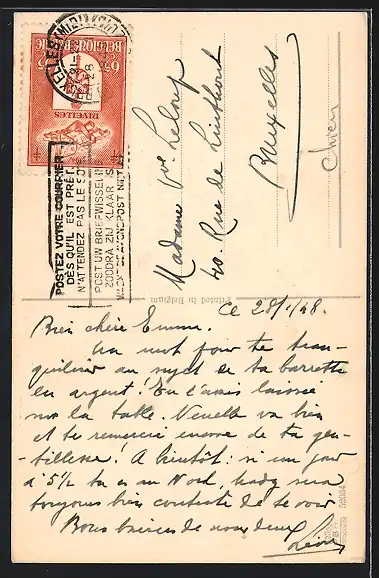 BELGIQUE-BELGIE
NIVELLES
POSTEZ VOTRE COURRIER
DÈS QU'IL EST PRÊT
N'ATTENDEZ PAS LE SOIR
POST UW BRIEFWISSELING
ZOODRA ZIJ KLAAR IS
WACHT DE AVONDPOST NIET AF
Madame Vve Leloup
40 Rue de Linthout
Bruxelles
chien
Printed in Belgium
Ce 28/1/48.
Bien chère Emma.
Un mot pour te tran-
quilliser au sujet de ta barrette
en argent! Tu l'avais laissée
sur la table. va bien
et te remercie encore de ta gen-
tillesse! A bientôt: si un jour
d' 5/2 tu es au Nord, sera
toujours bien contente de te voir
Bons baisers de nous deux
59084